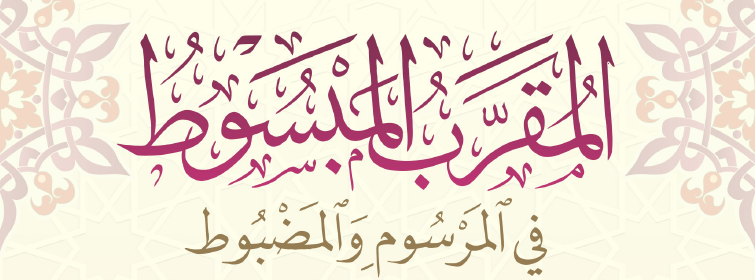 المُقَرَّبُ المَبْسُوط
في ٱلمَرْسُومِ وَٱلمَضْبُوط